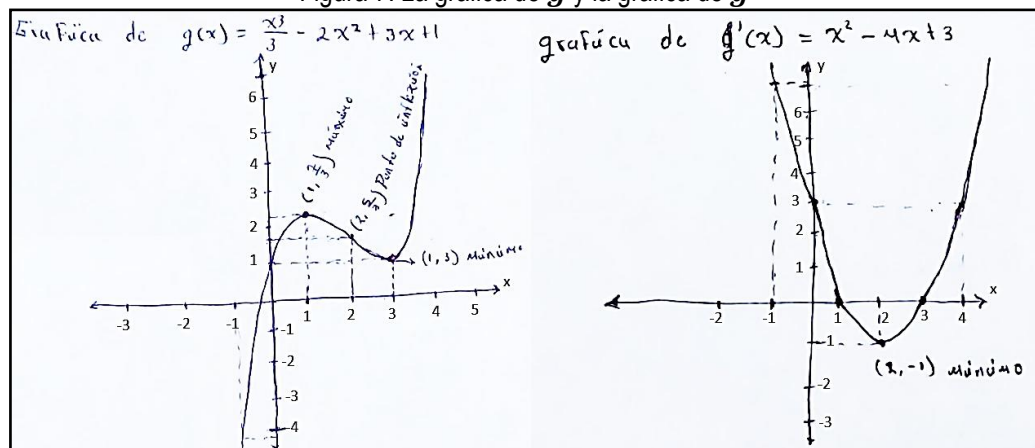 Figura 7. La gráfica de g y la gráfica de g'
Grafúca de g(x) = x³/3 - 2x² + 3x + 1
y
6
5
4
3
2
1
-1
-2
-3
-4
-3
-2
-1
1
2
3
4
5
x
(1, 7/3) múxúmo
(2, 5/3) Punto de únflexúón
(1, 3) múnúmo
grafúca de g'(x) = x² - 4x + 3
y
6
5
4
3
2
1
-1
-2
-3
-2
-1
1
2
3
4
x
(2, -1) múnúmo